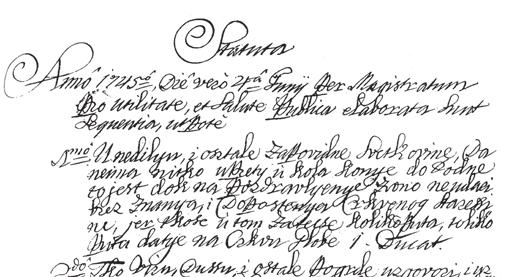 Statuta
Anno 1745to, Die verò 24ta Junij Per Magistratum
Pro utilitate, et Salute Publica elaborata sunt
Sequentia, ut Potè
1mo U nedilyu, i ostale zapovidne svetkovine, Da
neima nitko ukrety u kola konye do Podne
to jest dok na Pozdravlyenye zvono neudari
brez znanya, i Dopostenya Czrkvenog
ne, jer tkose u tom zateče, koliko puta, toliko
Puta datye na Czrkvu globe 1. Ducat.
2do Tko i ostale